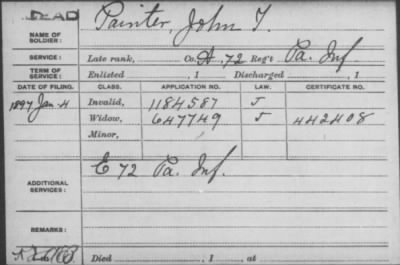 DEAD
NAME OF SOLDIER: Painter, John T.
SERVICE: Late rank, Co. A, 72 Reg't Pa. Inf.
TERM OF SERVICE: Enlisted , 1 Discharged , 1
DATE OF FILING. CLASS. APPLICATION NO. LAW. CERTIFICATE NO.
1897 Jan-4 Invalid, 1184587 J
Widow, 647749 J 442408
Minor,
ADDITIONAL SERVICES: E 72 Pa. Inf.
REMARKS:
Died , 1 , at